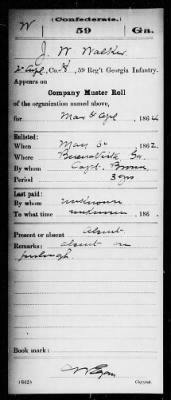 (Confederate.)
W 59 Ga.
J. W. Walker
Co. H, 59 Reg't Georgia Infantry.
Appears on
Company Muster Roll
of the organization named above,
for Mar & Apl, 1864
Enlisted:
When May 5, 1862.
Where Ga.
By whom Capt. Brown
Period 3 yrs
Last paid:
By whom unknown
To what time unknown, 186 .
Present or absent Absent
Remarks: absent on
furlough.
Book mark:
(642)
Copyist.